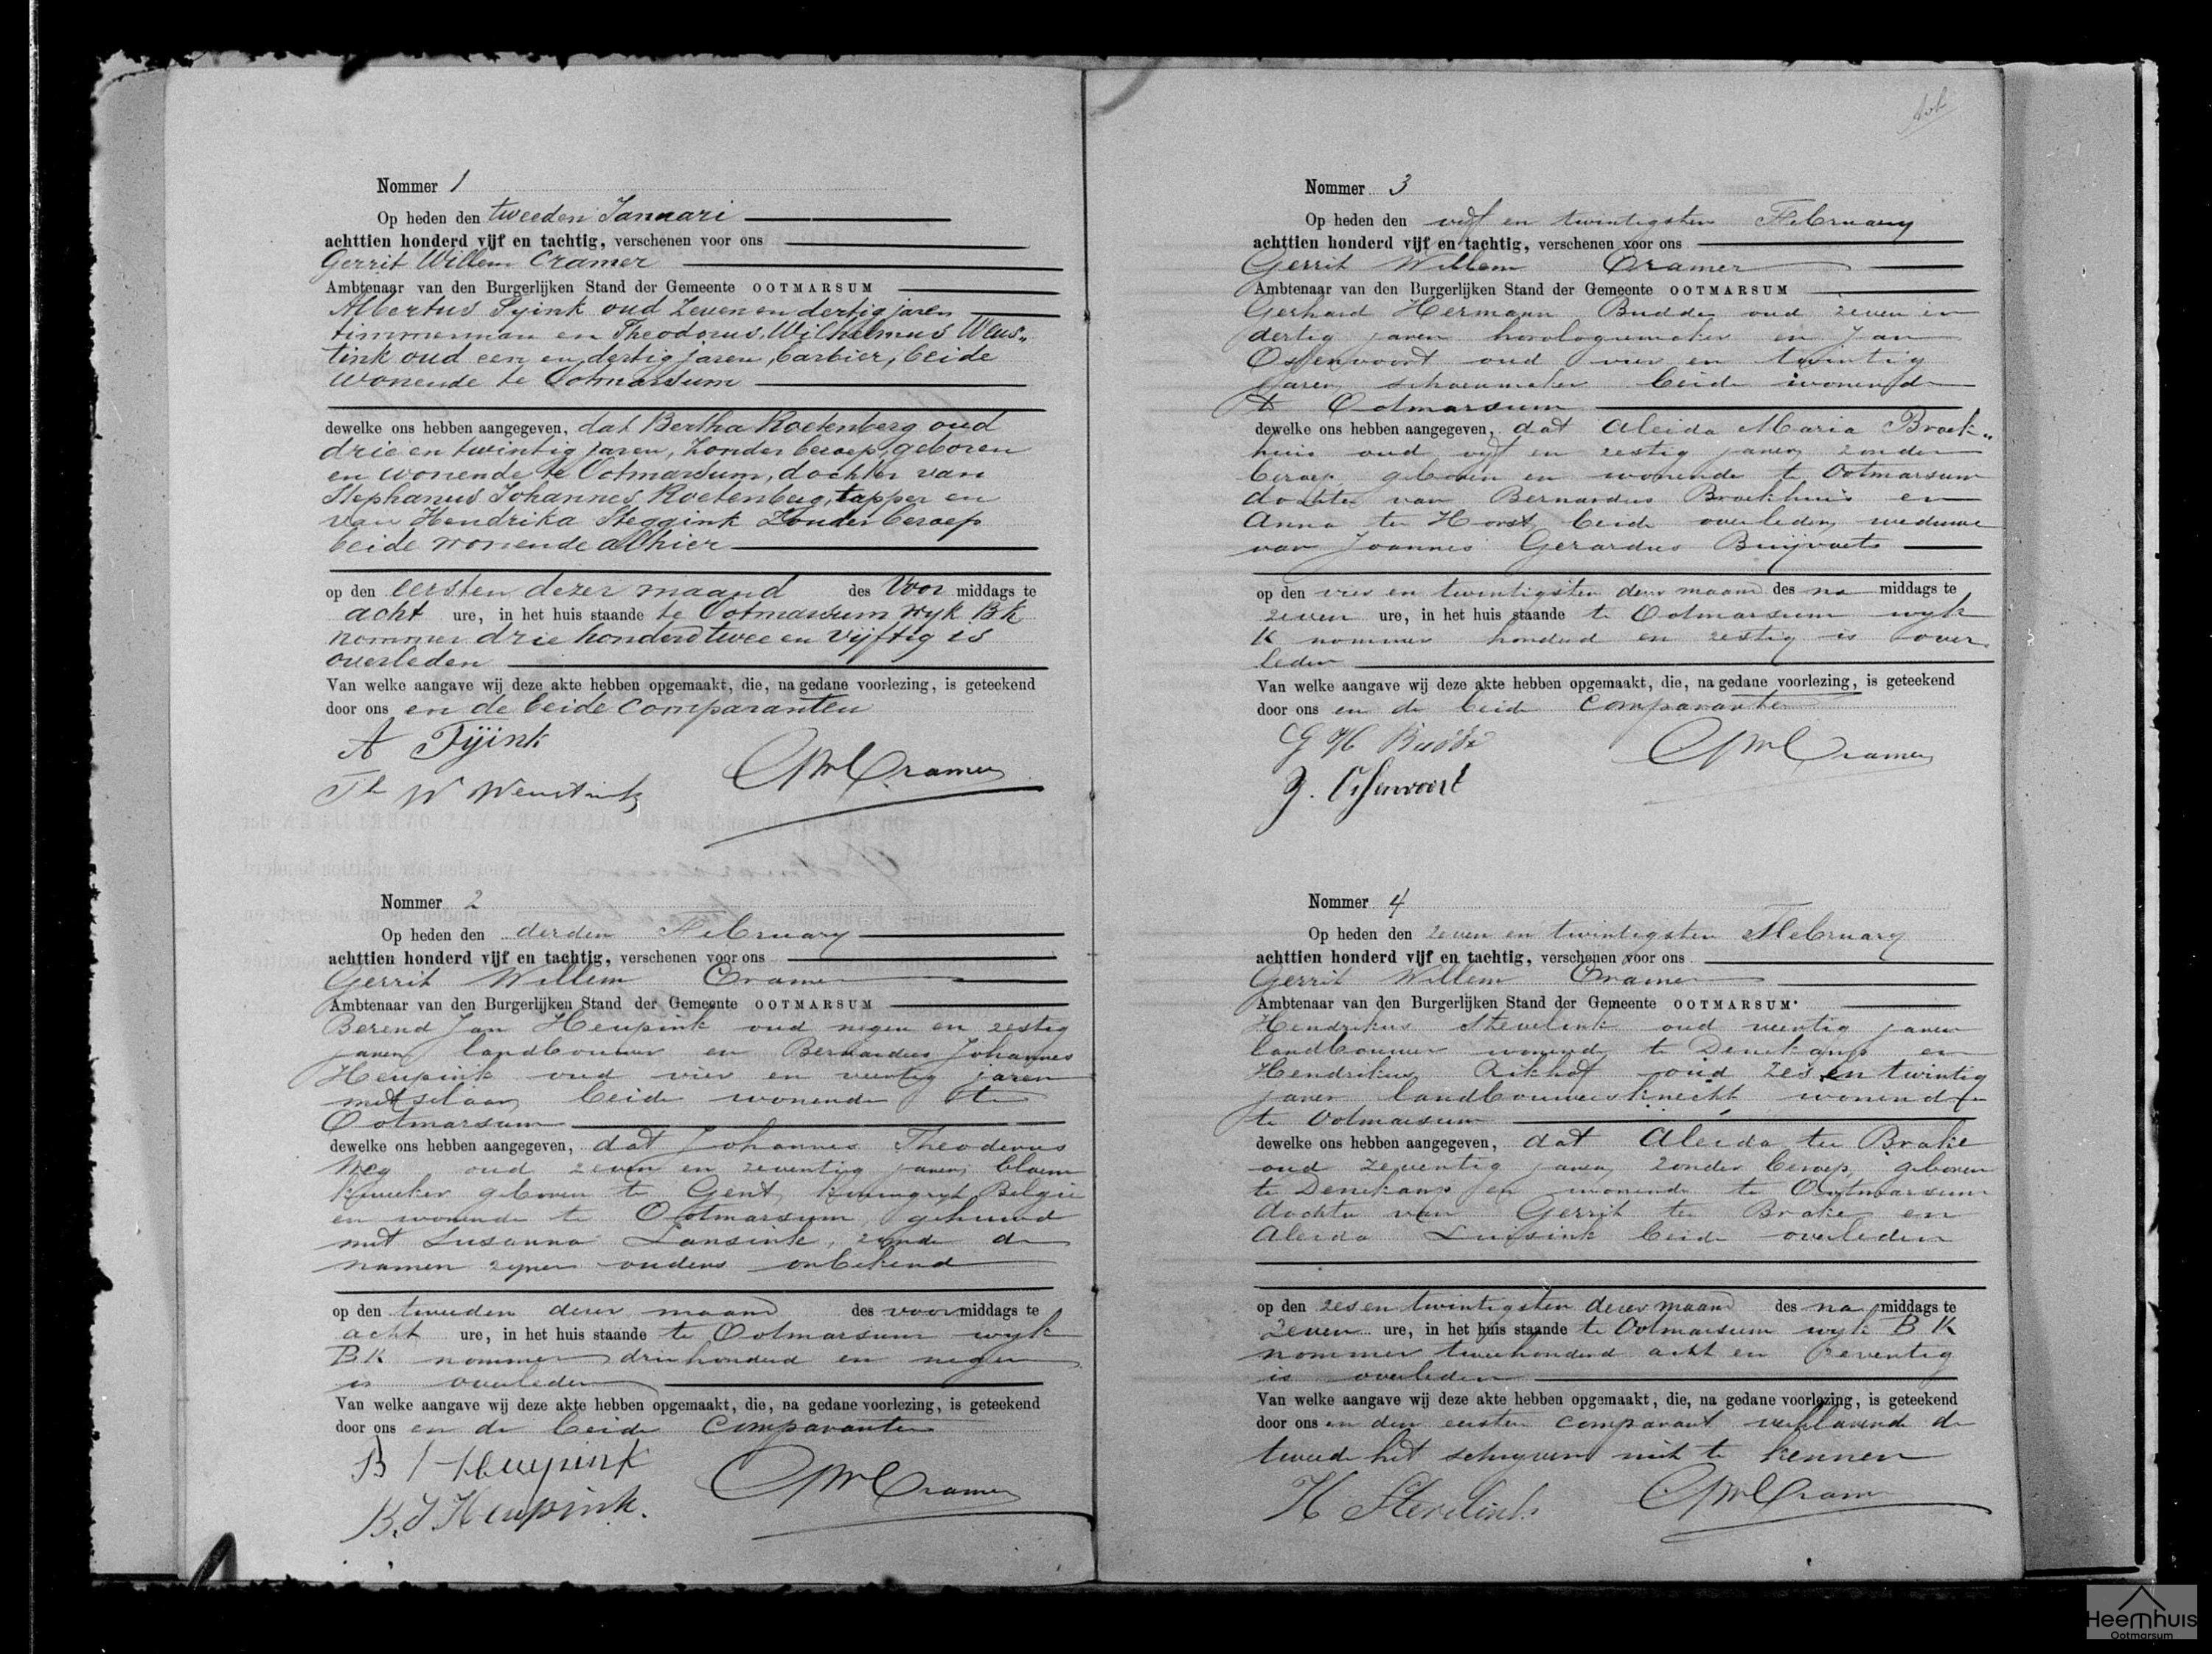 Nommer 1
Op heden den tweeden Januari
achttien honderd vijf en tachtig, verschenen voor ons
Gerrit Willem Cramer
Ambtenaar van den Burgerlijken Stand der Gemeente OOTMARSUM
Albertus Tyink oud Zeven en dertig jaren
timmerman en Theodorus Wilhelmus Weus„
tink oud een en dertig jaren, barbier, beide
wonende te Ootmarsum
dewelke ons hebben aangegeven, dat Bertha Roetenberg oud
drie en twintig jaren, Zonder beroep, geboren
en wonende te Ootmarsum, dochter van
Stephanus Johannes Roetenberg, tapper en
van Hendrika Steggink Zonder beroep
beide wonende alhier
op den eersten dezer maand des Voor middags te
acht ure, in het huis staande te Ootmarsum wyk BK
nommer drie honderd twee en vijftig is
overleden
Van welke aangave wij deze akte hebben opgemaakt, die, na gedane voorlezing, is geteekend
door ons en de beide comparanten
A Tijink
Th W Weustink
GWCramer
Nommer 2
Op heden den derden February
achttien honderd vijf en tachtig, verschenen voor ons
Gerrit Willem Cramer
Ambtenaar van den Burgerlijken Stand der Gemeente OOTMARSUM
Berend Jan Heupink oud negen en zestig
jaren landbouwer en Bernardus Johannes
Heupink oud vier en veertig jaren
metselaar, beide wonende te
Ootmarsum
dewelke ons hebben aangegeven, dat Johannes Theodorus
oud zeven en zeventig jaren, bloem
kweeker geboren te Gent, koningryk Belgie
en wonende te Ootmarsum, gehuwd
met Susanna Lansink, zynde de
namen zyner ouders onbekend
op den tweeden dezer maand des voor middags te
acht ure, in het huis staande te Ootmarsum wyk
BK nommer driehonderd en negen
is overleden
Van welke aangave wij deze akte hebben opgemaakt, die, na gedane voorlezing, is geteekend
door ons en de beide Comparanten
B J Heupink
B. J. Heupink.
GWCramer
Nommer 3
Op heden den vijf en twintigsten February
achttien honderd vijf en tachtig, verschenen voor ons
Gerrit Willem Cramer
Ambtenaar van den Burgerlijken Stand der Gemeente OOTMARSUM
Gerhard Hermann Budde oud zeven en
dertig jaren horologiemaker en Jan
Ossenvoort oud vier en twintig
jaren, schoenmaker beide wonende
te Ootmarsum
dewelke ons hebben aangegeven, dat Aleida Maria Broek„
huis oud vijf en zestig jaren, zonder
beroep, geboren en wonende te Ootmarsum
dochter van Bernardus Broekhuis en
Anna ter Horst, beide overleden, weduwe
van Joannes Gerardus Buijvoets
op den vier en twintigsten dezer maand des na middags te
zeven ure, in het huis staande te Ootmarsum wyk
K nommer honderd en zestig is over
leden
Van welke aangave wij deze akte hebben opgemaakt, die, na gedane voorlezing, is geteekend
door ons en de beide Comparanten
G H Budde
J. Ossenvoort
GWCramer
Nommer 4
Op heden den zeven en twintigsten February
achttien honderd vijf en tachtig, verschenen voor ons
Gerrit Willem Cramer
Ambtenaar van den Burgerlijken Stand der Gemeente OOTMARSUM
Hendrikus Stevelink oud veertig jaren
landbouwer wonende te Denekamp en
Hendrikus Rikhof oud zes en twintig
jaren landbouwersknecht wonende
te Ootmarsum
dewelke ons hebben aangegeven, dat Aleida ten Brake
oud zeventig jaren, zonder beroep, geboren
te Denekamp en wonende te Ootmarsum
dochter van Gerrit ten Brake en
Aleida beide overleden
op den zes en twintigsten dezer maand des na middags te
zeven ure, in het huis staande te Ootmarsum wyk BK
nommer tweehonderd acht en zeventig
is overleden
Van welke aangave wij deze akte hebben opgemaakt, die, na gedane voorlezing, is geteekend
door ons en den eersten comparant verklarende de
tweede het schryven niet te kennen
H Stevelink
GWCramer
Heemhuis
Ootmarsum